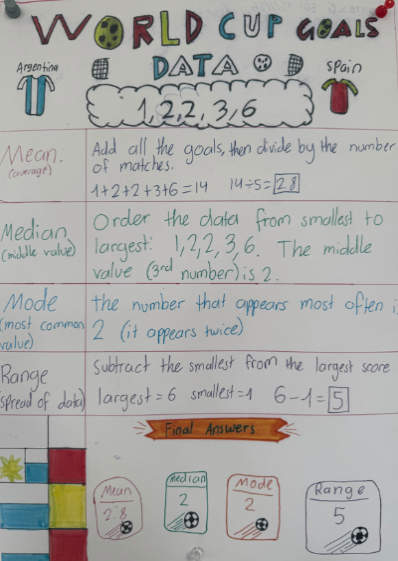 WORLD CUP GOALS
DATA
Argentina
Spain
1,2,2,3,6
Mean:
(average)
Add all the goals, then divide by the number
of matches.
1+2+2+3+6=14 14÷5=2.8
Median
(middle value)
Order the data from smallest to
largest: 1,2,2,3,6. The middle
value (3rd number) is 2.
Mode
(most common
value)
the number that appears most often i
2 (it appears twice)
Range
(spread of data)
Subtract the smallest from the largest score
largest=6 smallest=1 6-1=5
Final Answers
Mean
2.8
Median
2
Mode
2
Range
5